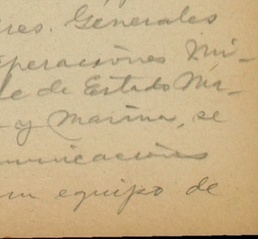 res. Generales
peraciones Mi-
fe de Estado Ma-
y Marina, se
municaciones
un equipo de